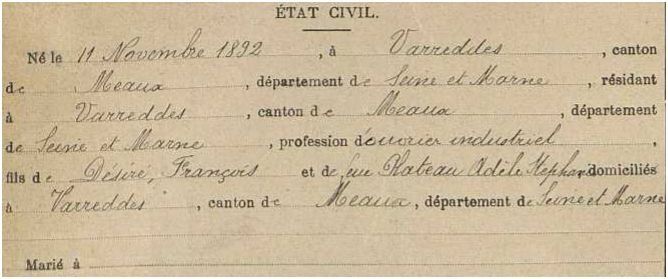 ÉTAT CIVIL.
Né le 11 Novembre 1892, à Varreddes, canton
de Meaux, département de Seine et Marne, résidant
à Varreddes, canton de Meaux, département
de Seine et Marne, profession d'ouvrier industriel,
fils de Désiré, François et de feue Plateau Adèle Stephanie domiciliés
à Varreddes, canton de Meaux, département de Seine et Marne
Marié à